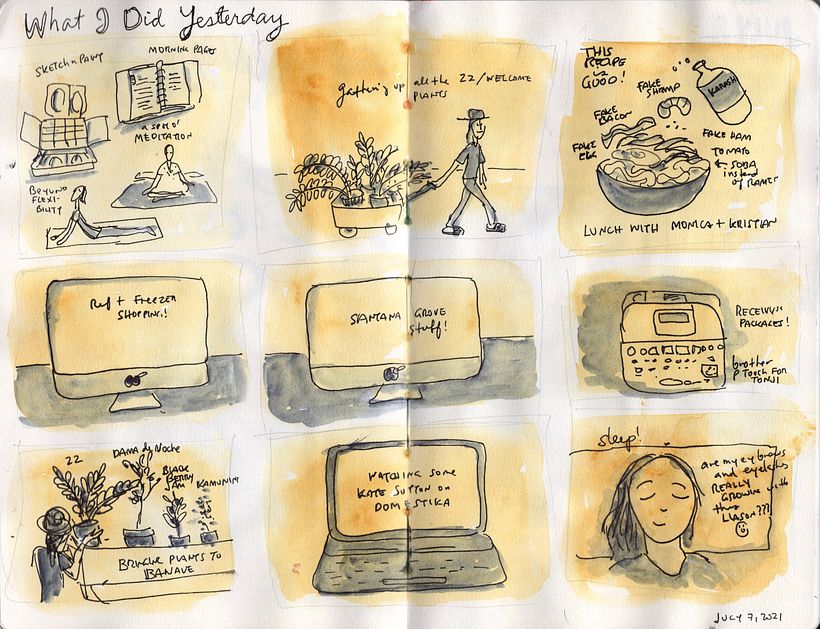 What I Did Yesterday
SKETCH n PAINT
MORNING PAGES
a spot of
MEDITATION
BEYOND
FLEXI-
BILITY
gathering up all the 22/WELCOME
PLANTS
THIS
RECIPE
is
GOOD!
FAKE
SHRIMP
FAKE
BACON
FAKE
EGG
FAKE HAM
TOMATO
SOBA
instead
of RAMEN
LUNCH WITH MONICA + KRISTIAN
Ref + FREEZER
SHOPPING!
SANTANA GROVE
stuff!
RECEIVING
PACKAGES!
brother
P TOUCH FOR
22
DAMA de NOCHE
BLACK
BERRY
JAM
KAMUNING
BRINGING PLANTS TO
BANAUE
WATCHING SOME
KATE SUTTON ON
DOMESTIKA
sleep!
are my eyebrows
and eyelashes
REALLY
GROWING with
this
JULY 7, 2021